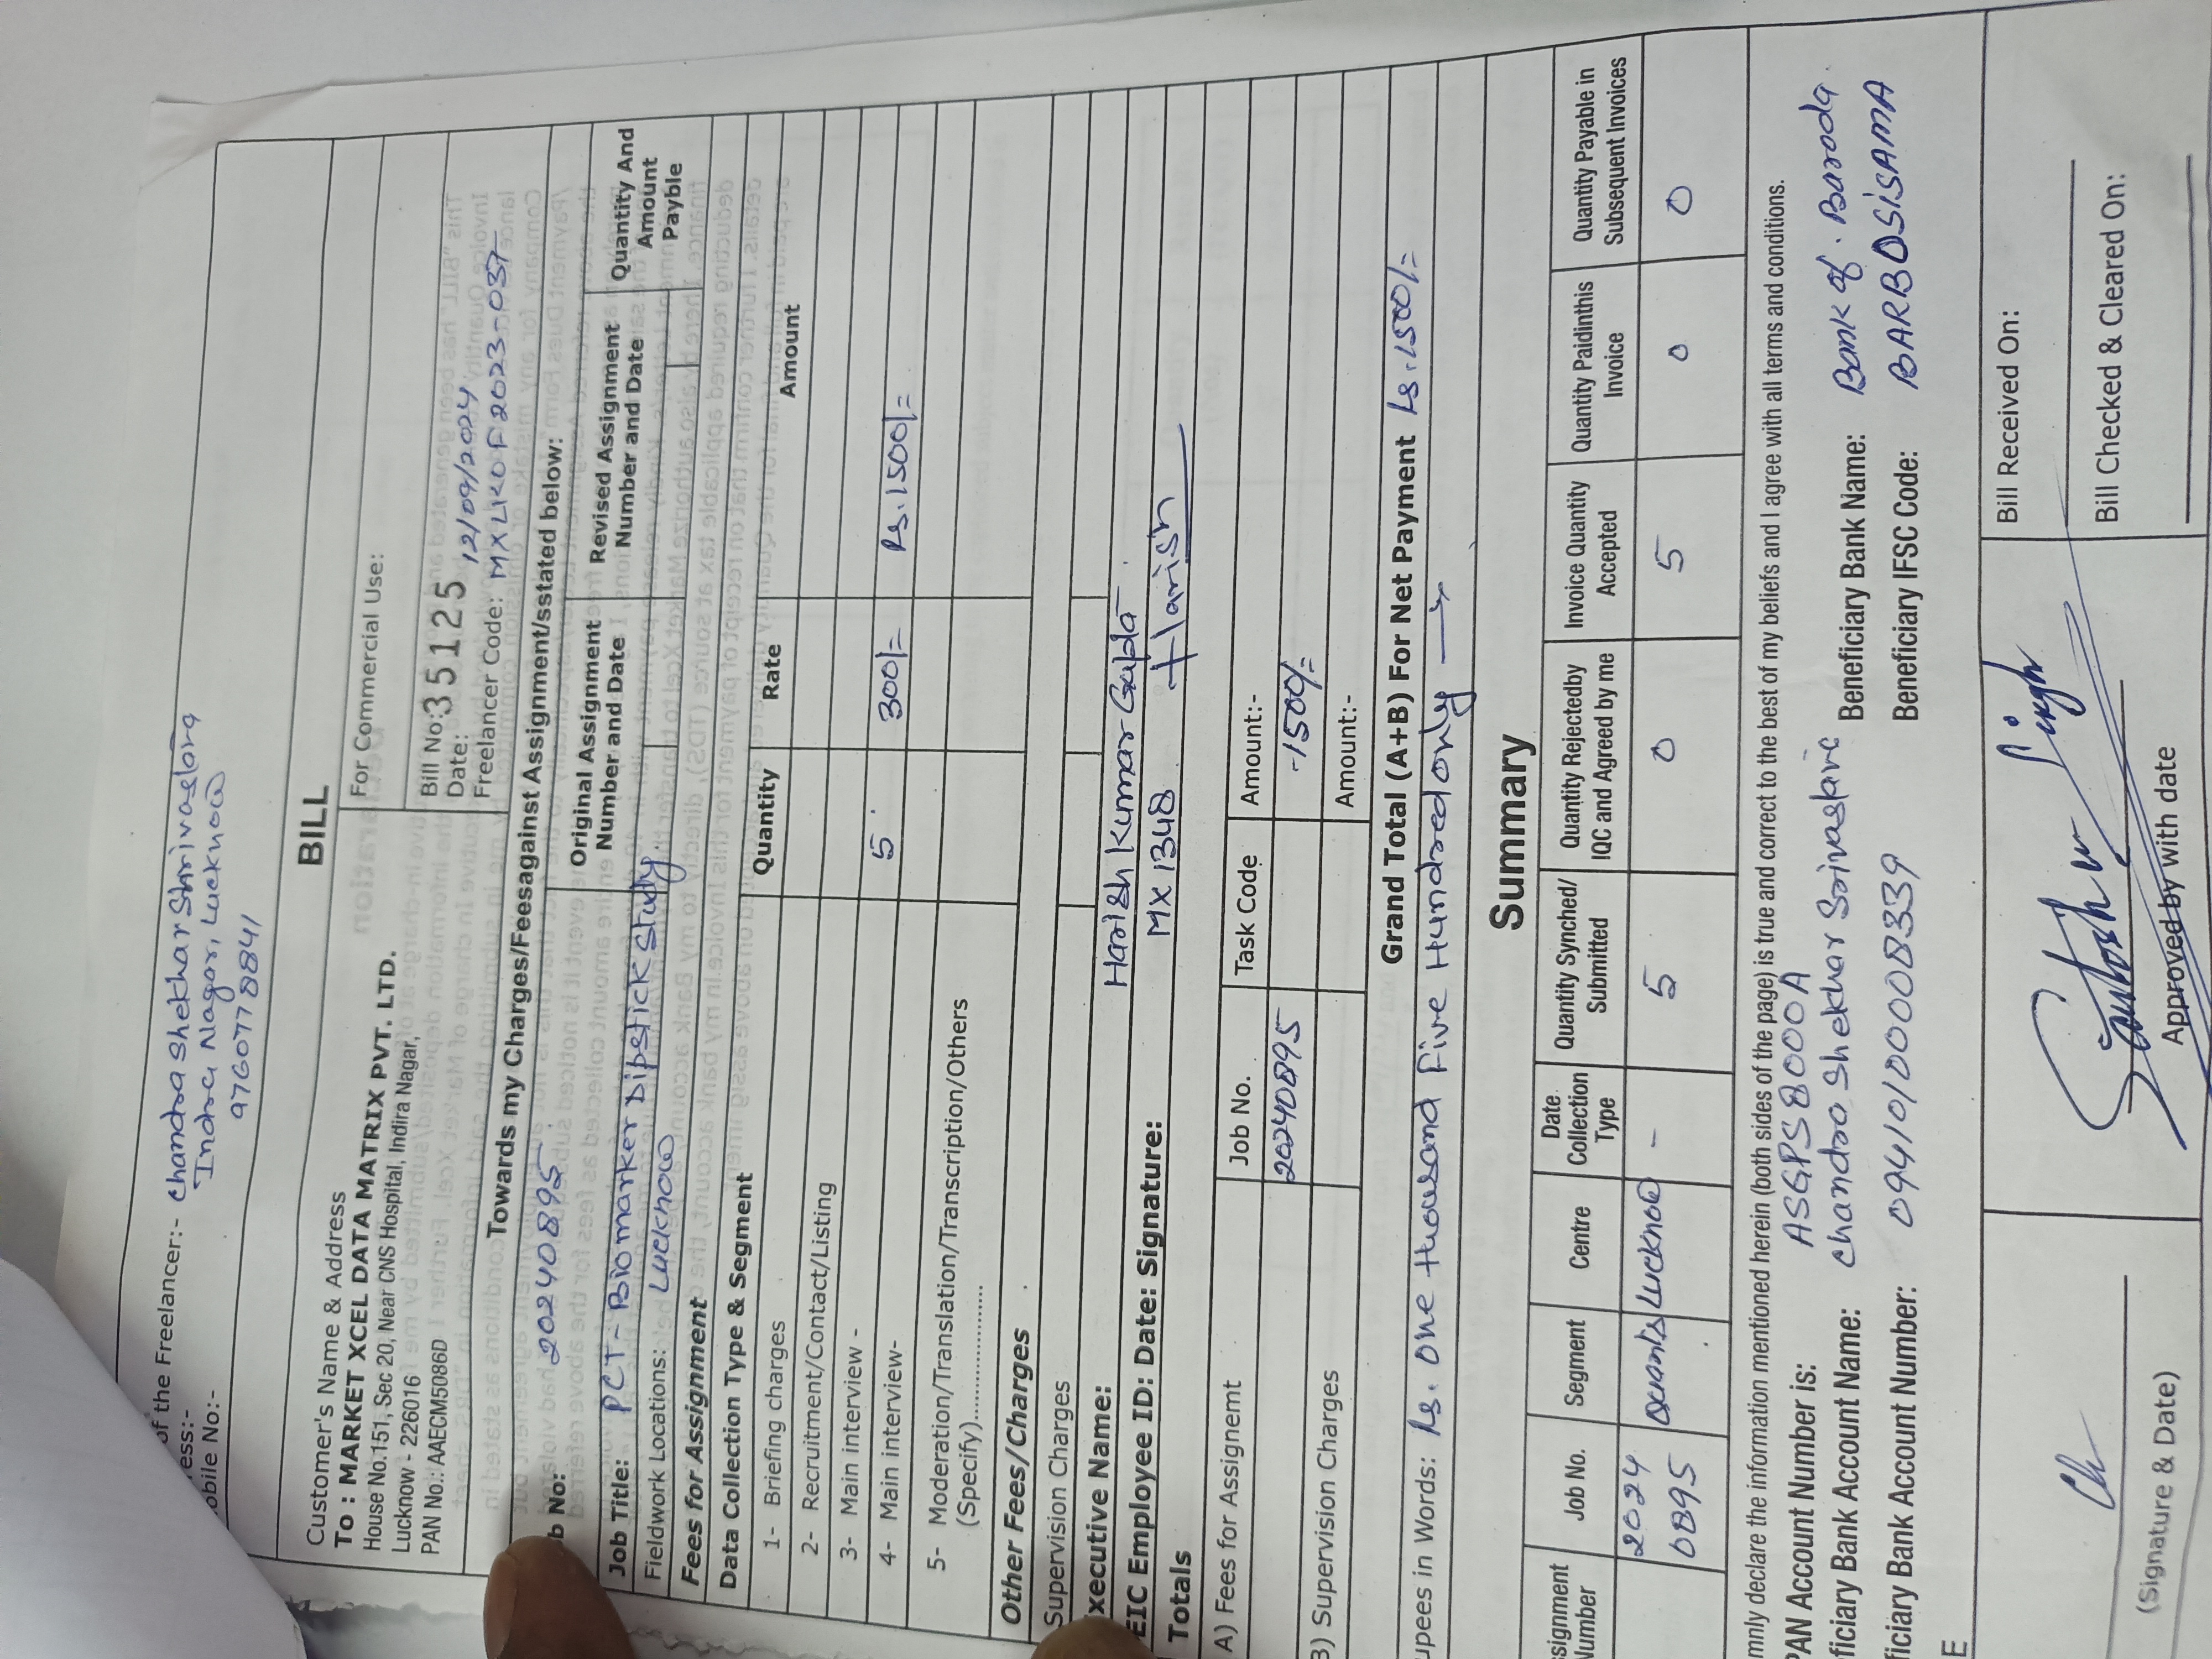 of the Freelancer:- Chandra Shekhar Shrivastava
ess:- Indra Nagar, Lucknow
obile No:- 9760778841
BILL
Customer's Name & Address
To : MARKET XCEL DATA MATRIX PVT. LTD.
House No.151, Sec 20, Near CNS Hospital, Indira Nagar,
Lucknow - 226016
PAN No.: AAECM5086D
For Commercial Use:
Bill No: 35125
Date: 12/09/2024
Freelancer Code: MXLKOF2023-037
Towards my Charges/Feesagainst Assignment/sstated below:
b No: 20240895
Original Assignment Number and Date
Revised Assignment Number and Date
Quantity And Amount Payble
Job Title: PCT- Biomarker Dipstick Study
Fieldwork Locations: Lucknow
Fees for Assignment
Data Collection Type & Segment Quantity Rate Amount
1- Briefing charges
2- Recruitment/Contact/Listing
3- Main interview -
4- Main interview- 5 300/= Rs.1500/=
5- Moderation/Translation/Transcription/Others
(Specify)....................
Other Fees/Charges
Supervision Charges
xecutive Name: Harish Kumar Gupta
EIC Employee ID: Date: Signature: MX1348 Harish
Totals
A) Fees for Assignemt Job No. Task Code Amount:-
20240895 -1500/=
B) Supervision Charges Amount:-
Grand Total (A+B) For Net Payment Rs.1500/=
upees in Words: Rs. One Thousand Five Hundred only
Summary
ssignment Number Job No. Segment Centre Date Collection Type Quantity Synched/ Submitted Quantity Rejectedby IQC and Agreed by me Invoice Quantity Accepted Quantity Paidinthis Invoice Quantity Payable in Subsequent Invoices
2024 0895 Lucknow - 5 0 5 0 0
mnly declare the information mentioned herein (both sides of the page) is true and correct to the best of my beliefs and I agree with all terms and conditions.
PAN Account Number is: ASGPS8000A
ficiary Bank Account Name: Chandra Shekhar Srivastava Beneficiary Bank Name: Bank of Baroda
ficiary Bank Account Number: 09410100008339 Beneficiary IFSC Code: BARB0SISAMA
E
(Signature & Date)
Santosh Singh
Approved by with date
Bill Received On:
Bill Checked & Cleared On: